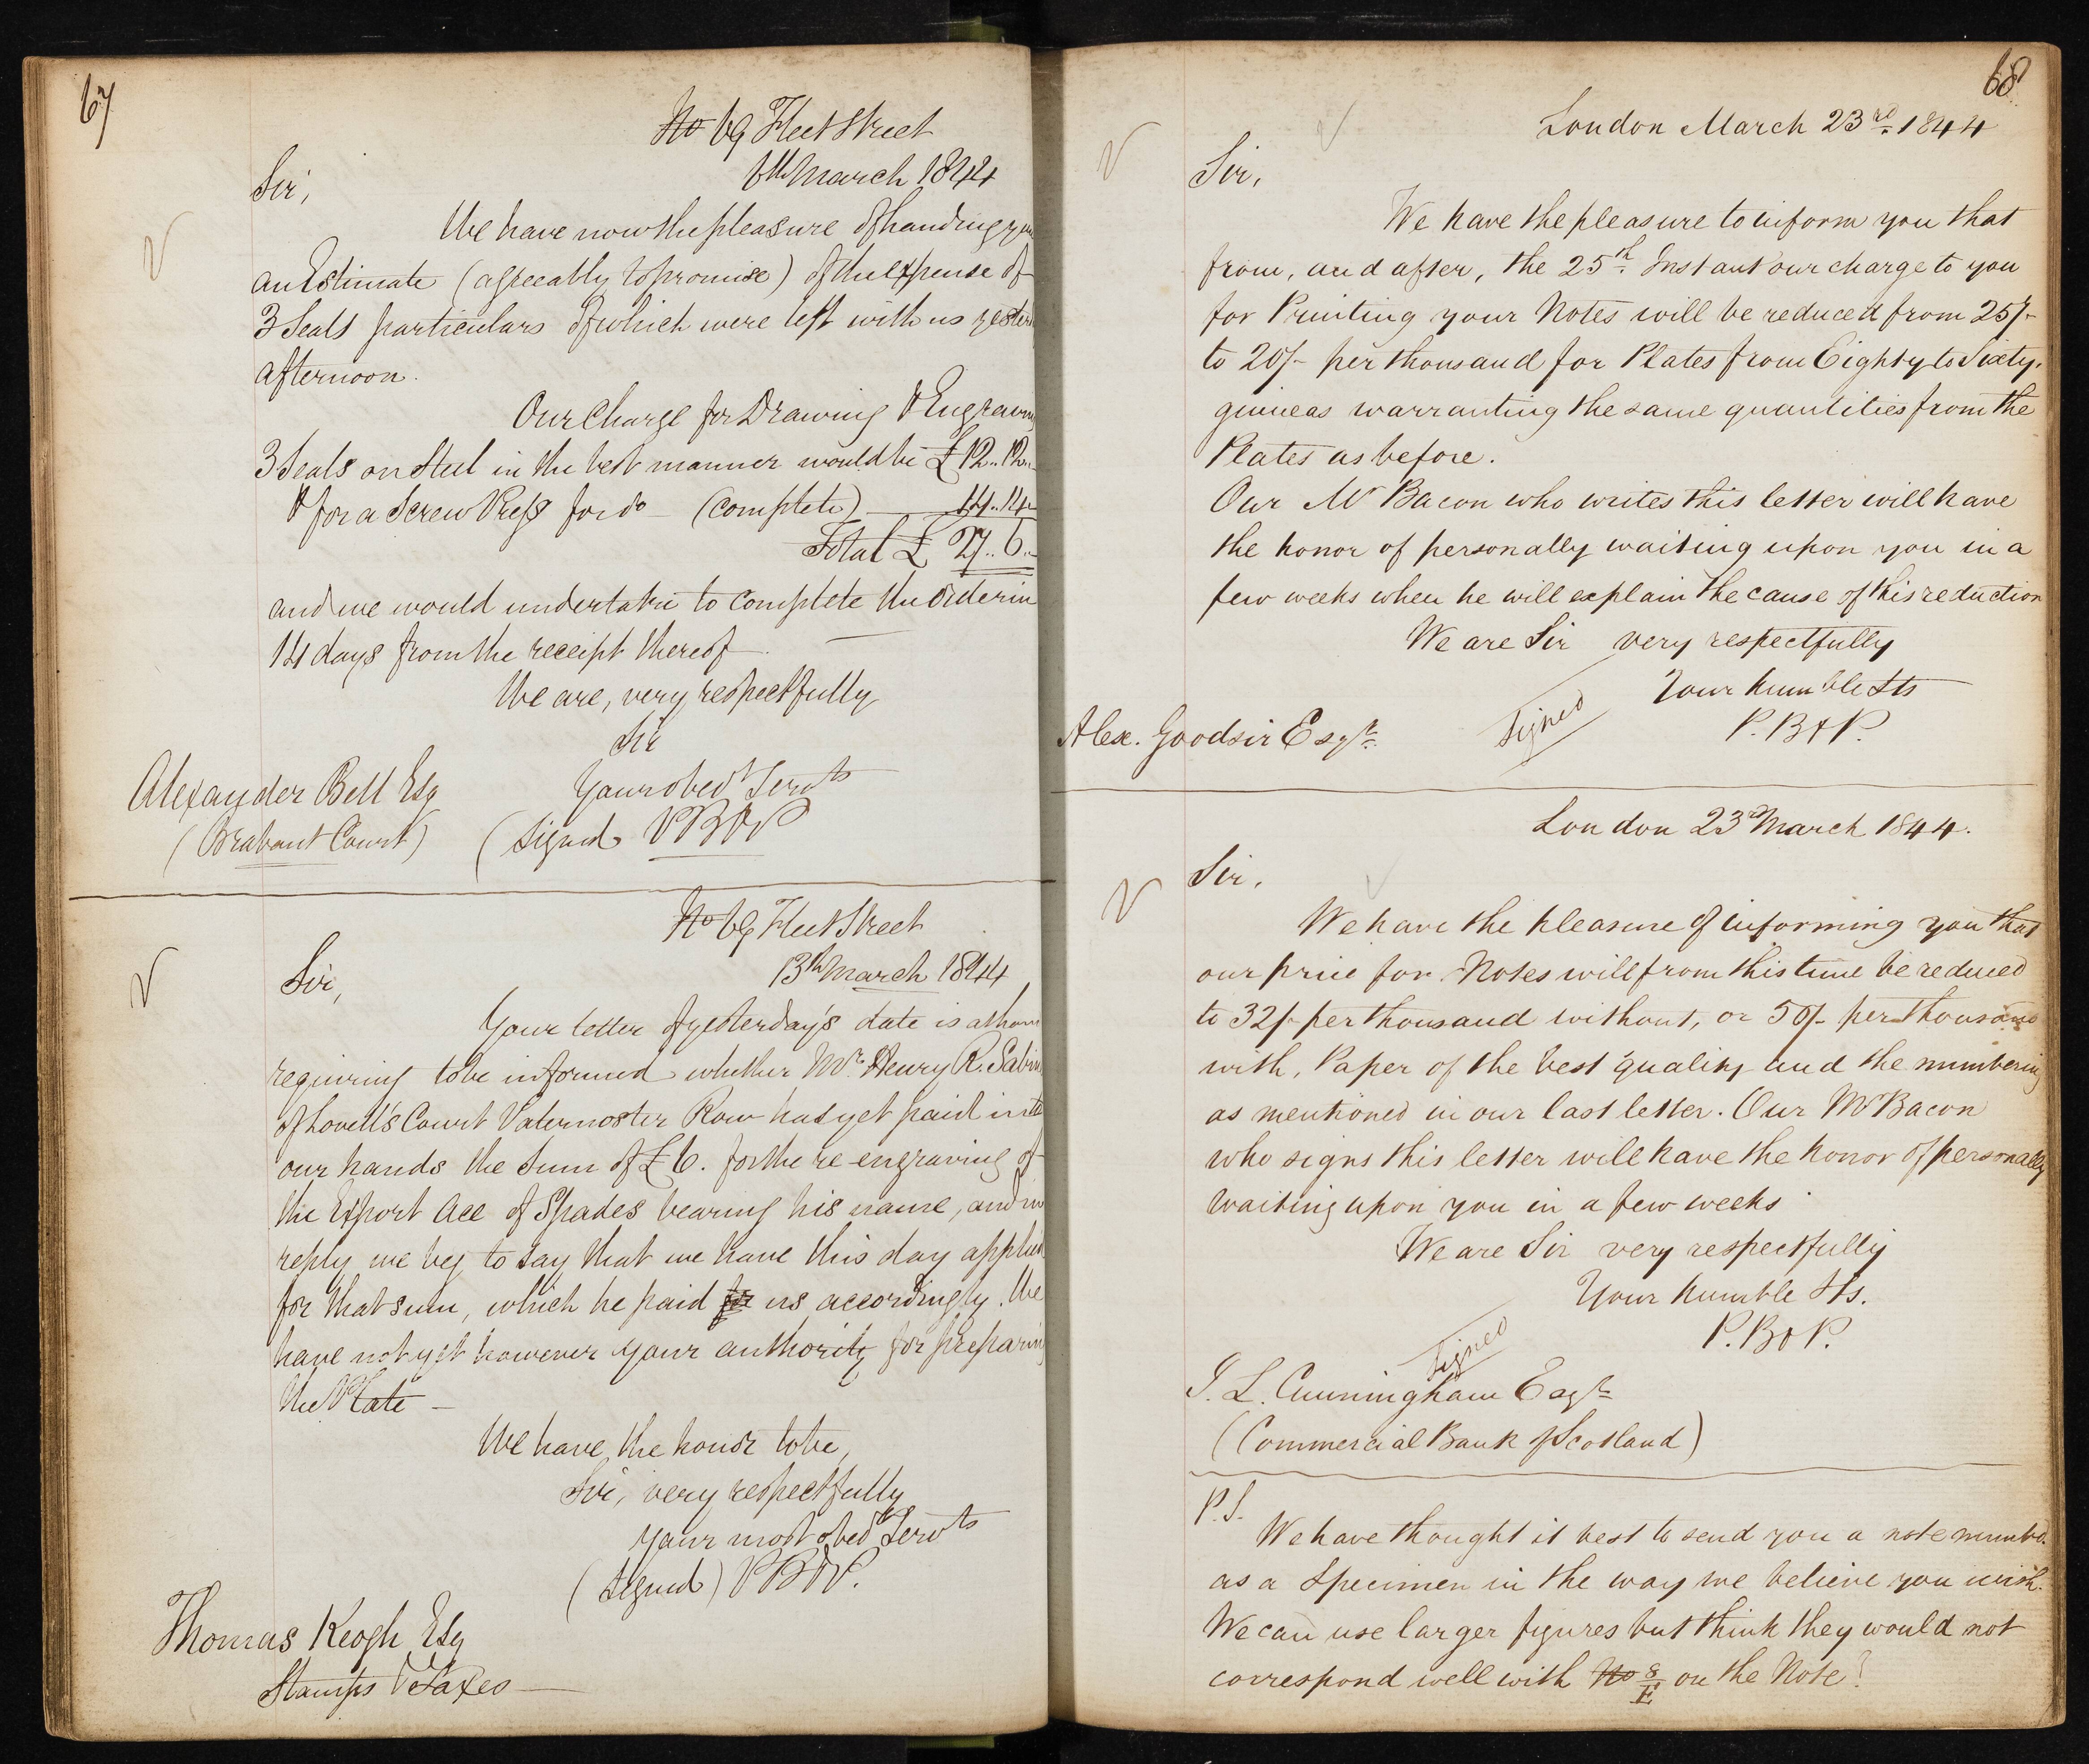 67
No 69 Fleet Street
6th March 1844
Sir,
We have now the pleasure of handing you
an Estimate (agreeably to promise) of the expense of
3 Seals particulars of which were left with us yester
afternoon.
Our Charge for Drawing & Engraving
3 Seals on Steel in the best manner would be £ 12..12..
& for a Screw Press for do — (complete) — 14..14..
Total £ 27..6..
and we would undertake to complete the order in
14 days from the receipt thereof —
We are, very respectfully
Sir
Your obedt Servts
Alexander Bell Esq
(Brabant Court)
(Signed PB&P
No 69 Fleet Street
13th March 1844
Sir,
Your letter of yesterday's date is at hand
requiring to be informed whether Mr. Henry R. Sabin
of Lovell's Court Paternoster Row has yet paid into
our hands the Sum of £6. for the re-engraving of
the Export Ace of Spades bearing his name, and in
reply we beg to say that we have this day applied
for that sum, which he paid us accordingly. We
have not yet however your authority for preparing
the Plate —
We have the honor to be,
Sir, very respectfully
your most obedt Servts
(Signed) PB&P.
Thomas Keogh Esq
Stamps & Taxes —
68
London March 23rd. 1844
Sir,
We have the pleasure to inform you that
from, and after, the 25th. Instant our charge to you
for Printing your Notes will be reduced from 25/-
to 20/- per thousand for Plates from Eighty to Sixty.
guineas warranting the same quantities from the
Plates as before.
Our Mr Bacon who writes this letter will have
the honor of personally waiting upon you in a
few weeks when he will explain the cause of this reduction
We are Sir very respectfully
Your humble Sts
Signed
P. B & P.
Alex. Goodsir Esqr.
London 23rd March 1844.
Sir.
We have the pleasure of informing you that
our price for Notes will from this time be reduced
to 32/- per thousand without, or 50/- per thousand
with, Paper of the best quality and the numbering
as mentioned in our last letter. Our Mr Bacon
who signs this letter will have the honor of personally
waiting upon you in a few weeks.
We are Sir very respectfully
Your humble Sts.
P. B & P.
Signed
J. L. Cunningham Esqr.
(Commercial Bank of Scotland)
P.S.
We have thought it best to send you a note numbd.
as a Specimen in the way we believe you wish.
We can use larger figures but think they would not
correspond well with No S/E on the Note?